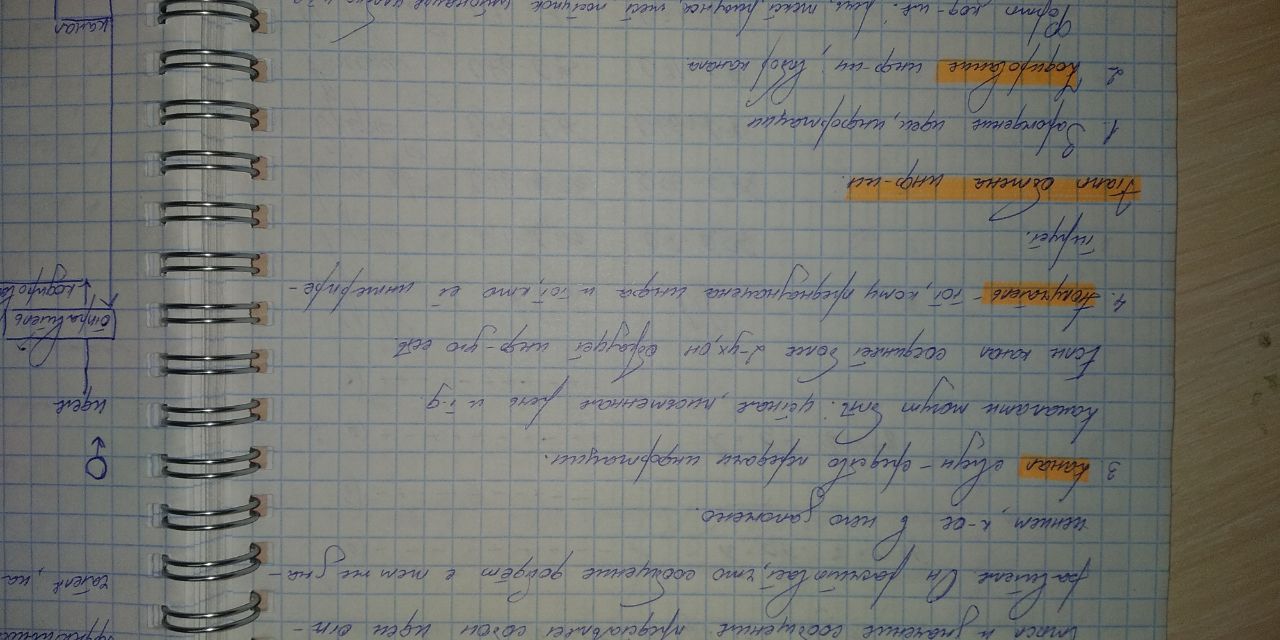 смысл и значение сообщения представляет собой идеи от-
равителя. Он рассчитывает, что сообщение дойдёт с тем же зна-
чением, к-ое в него заложено.
3. Канал связи - средство передачи информации.
Каналами могут быть: устная, письменная речь и т.д.
Если канал соединяет более 2-ух, он образует инф-ую сеть
4. Получатель - тот, кому предназначена инфа и тот, кто её интерпре-
тирует.
Этапы обмена инф-ии.
1. Зарождение идеи, информации
2. Кодирование инф-ии, выбор канала
идея
отправитель
кодирова
канал